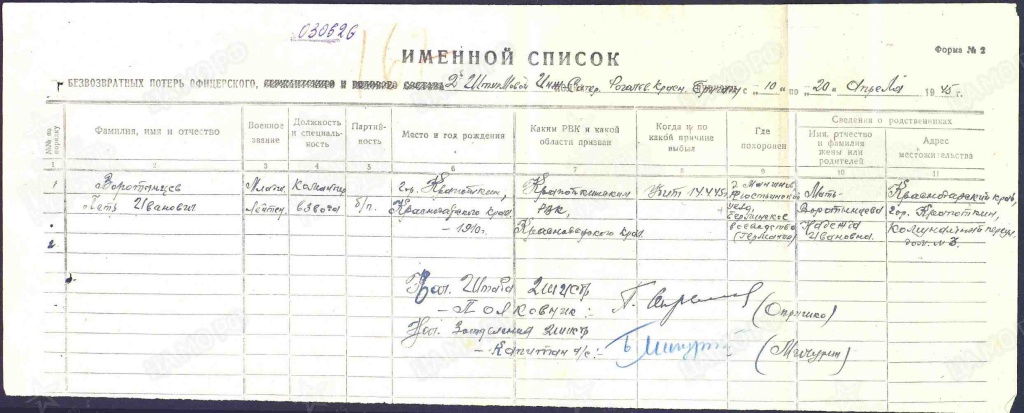 030626
ИМЕННОЙ СПИСОК
Форма № 2
БЕЗВОЗВРАТНЫХ ПОТЕРЬ ОФИЦЕРСКОГО, СЕРЖАНТСКОГО И РЯДОВОГО СОСТАВА 2й Штурмовой Инж. Сапер. Рогачев Красн. Бригады с „10" по „20" апреля 1945 г.
№№ по порядку
Фамилия, имя и отчество
Военное звание
Должность и специальность
Партийность
Место и год рождения
Каким РВК и какой области призван
Когда и по какой причине выбыл
Где похоронен
Сведения о родственниках
Имя, отчество и фамилия жены или родителей
Адрес местожительства
1 2 3 4 5 6 7 8 9 10 11
1 Воротынцев Младш. Командир гор. Кропоткин, Кропоткинским Убит 14.4.45г. Мать- Краснодарский край,
Петр Иванович Лейтен. взвода б/п. Краснодарского края, РВК, уезд, Воротынцева гор. Кропоткин,
- 1910г. Краснодарского края. воеводство Надежда
(Германия) Ивановна. дом. № 3.
2
Нач. Штаба 2шисбр
- Полковник: (Опрышко)
Нач. Отделения 2шисбр
- Капитан а/с: Б Мичурин (Мичурин)
ЦАМО РФ